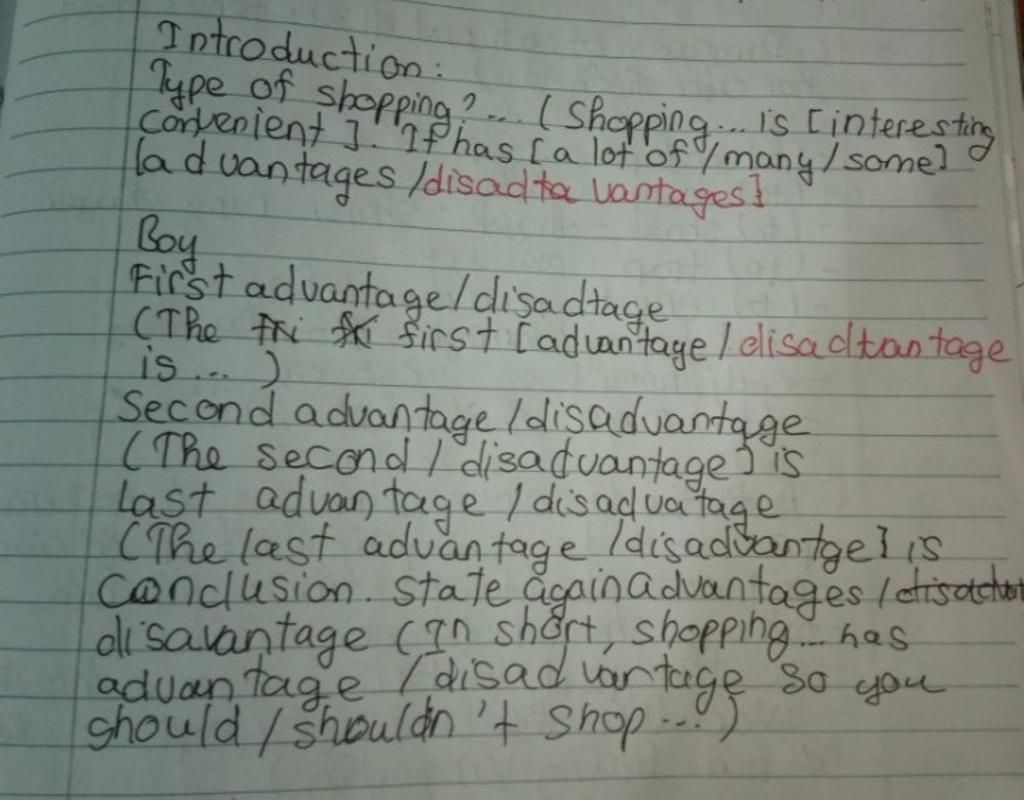 Introduction:
Type of shopping?... (Shopping... is [interesting
convenient]. It has [a lot of/many/some]
[advantages/disadta vantages]
Boy
First advantage/disadtage
(The first [advantage/disadtantage
is... )
Second advantage/disadvantage
(The second/disadvantage] is
Last advantage/disadvatage
(The last advantage/disadvantge] is
Conclusion. State again advantages/
disavantage (In short, shopping... has
advantage/disadvantage so you
should/shouldn't shop...)